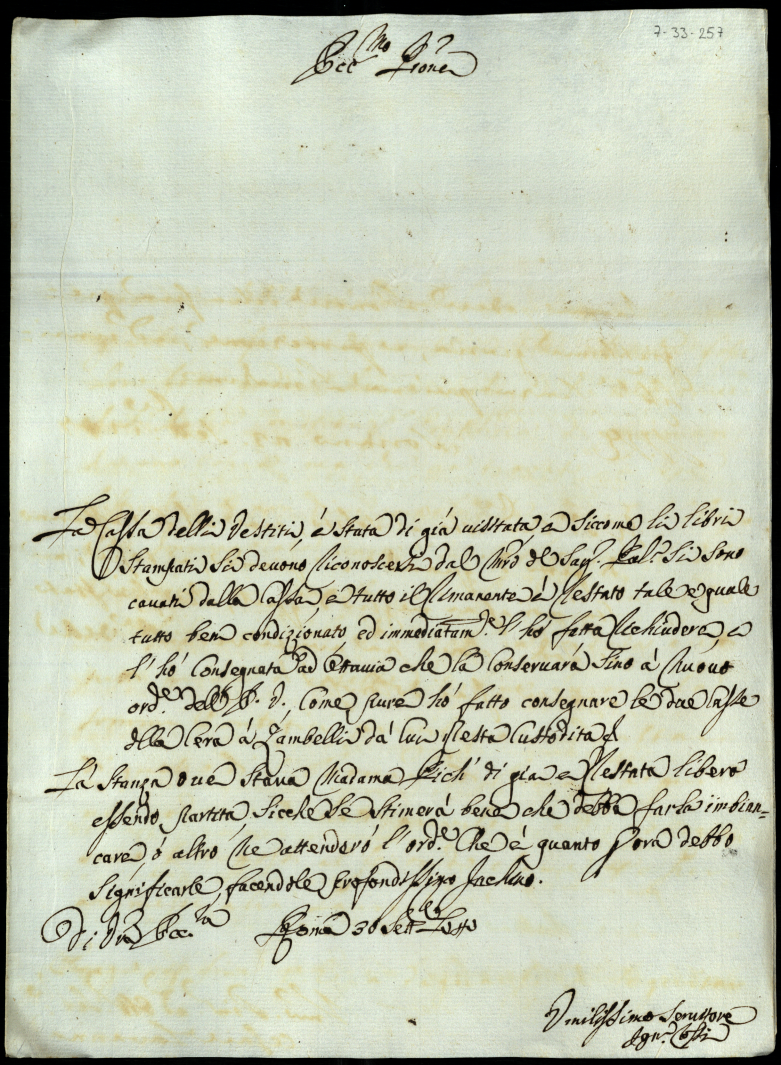 7-33-257
Ecc.mo P.rone
La Cassa delli Vestiti, é stata di giá uisitata, e siccome li libri
stampati si deuono riconoscersi dal Mro del Sag. Pal.o si sono
cauati dalla Cassa, e tutto il rimanente é restato tale e quale
tutto ben condizionato ed immediatam.te l'hó fatta richiudere, e
l'hó consegnata ad Ottauia che la conseruará sino á nuouo
ord.e dell'E. V., come pure hó fatto consegnare le due Casse
della Cera á Zambelli dá lui resta custodita
La stanza oue staua Madama Pich' di gia e restata libera
essendo partita, sicche se stimerá bene che debba farla imbian=
care, ó altro ne attenderó l'ord.e Che é quanto p ora debbo
significarle, facendole profondissimo Inchino.
Di Vra Ecc.za
Roma 30 Sett.bre
Umilissimo Seruitore